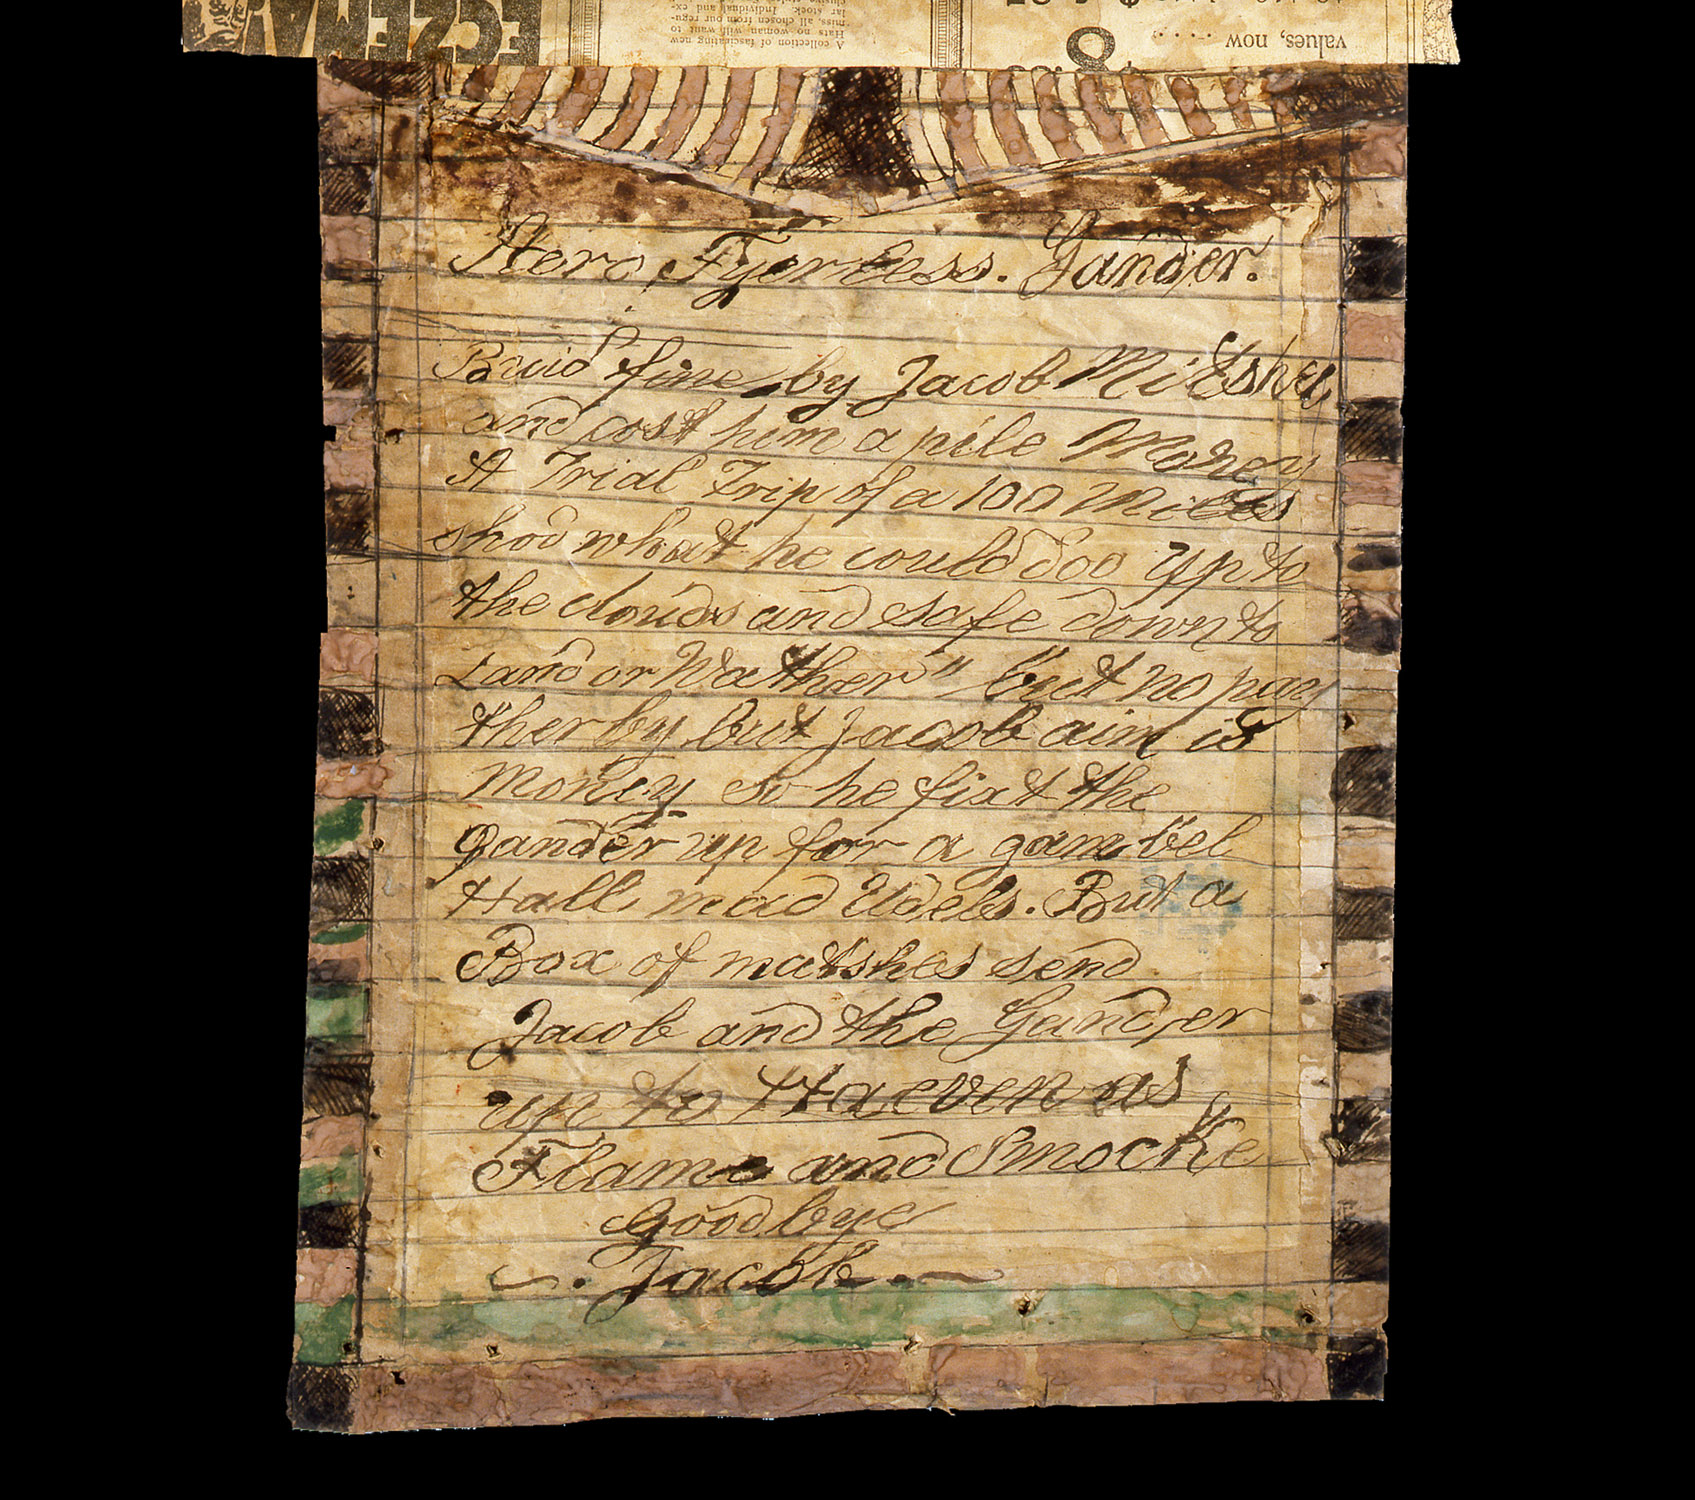 ECZEMA
A collection of fascinating new
Hats no woman will want to
miss, all chosen from our regu-
lar stock. Individual and ex-
values, now ..... 8
Hero, Fyerless. Gander.
Buid fine by Jacob Mitshel
and cost him a pile Money
A Trial Trip of a 100 Miles
shod what he could doo up to
the clouds and safe down to
Land or Wather" but no pay
therby but Jacob aim is
Money so he fixt the
gander up for a gambel
Hall mad Udels. But a
Box of matshes send
Jacob and the Gander
up to Haeven as
Flame and Smocke
Goodbye
Jacob